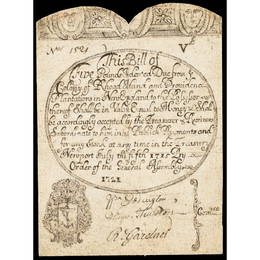 No 1584 V
This Bill of
Five Pounds Indented Due from ye
Colony of Rhood Island and Providence
Plantations in New England to the Possessor
thereof Shall be in Value Equal to Money & Shall
be accordingly accepted by the Treasurer & Receivers
Subordinate to him in all Publick Payments and
for any Stock at any time in the Treasury
Newport July the fifth 1715 By
Order of the General Assembly
1721